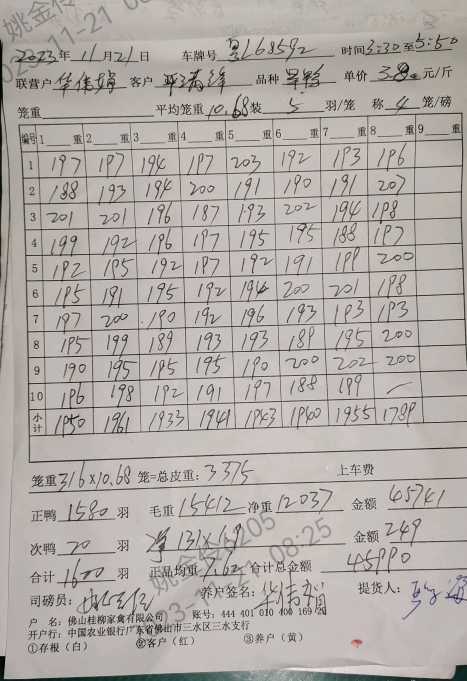 2023年 11月21日 车牌号 粤L68592 时间3:30至5:50
联营户 华伟娟 客户 品种 单价 3.8 元/斤
笼重 平均笼重 10.68 装 5 羽/笼 称 4 笼/磅
编号 1 重 2 重 3 重 4 重 5 重 6 重 7 重 8 重 9 重
1 197 197 194 197 203 192 193 196
2 188 193 194 200 191 190 191 207
3 201 201 196 187 193 202 194 198
4 199 192 196 197 195 195 188 197
5 192 195 192 197 192 191 199 200
6 195 191 195 192 194 200 201 198
7 197 200 190 192 196 193 193 193
8 195 199 189 193 193 189 195 200
9 190 195 195 195 190 200 202 200
10 196 198 192 191 197 188 199 —
小计 1950 1961 1933 1941 1943 1940 1955 1789
笼重 316×10.68 笼=总皮重: 3375 上车费
正鸭 1580 羽 毛重 15412 净重 12037 金额 45741
次鸭 20 羽 净 131×1.9 金额 249
合计 1600 羽 正品均重 7.62 合计总金额 45990
司磅员: 养户签名: 华伟娟 提货人:
户 名: 佛山桂柳家禽有限公司 账号: 444 401 010 400 169 20
开户行: 中国农业银行广东省佛山市三水区三水支行
①存根(白) ②客户(红) ③养户(黄)